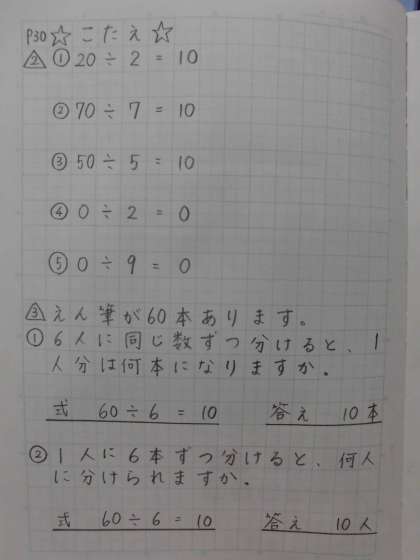 P30 ☆ こたえ ☆
2 ① 20 ÷ 2 = 10
② 70 ÷ 7 = 10
③ 50 ÷ 5 = 10
④ 0 ÷ 2 = 0
⑤ 0 ÷ 9 = 0
3 えん筆が60本あります。
① 6人に同じ数ずつ分けると、1
人分は何本になりますか。
式 60 ÷ 6 = 10 答え 10本
② 1人に6本ずつ分けると、何人
に分けられますか。
式 60 ÷ 6 = 10 答え 10人